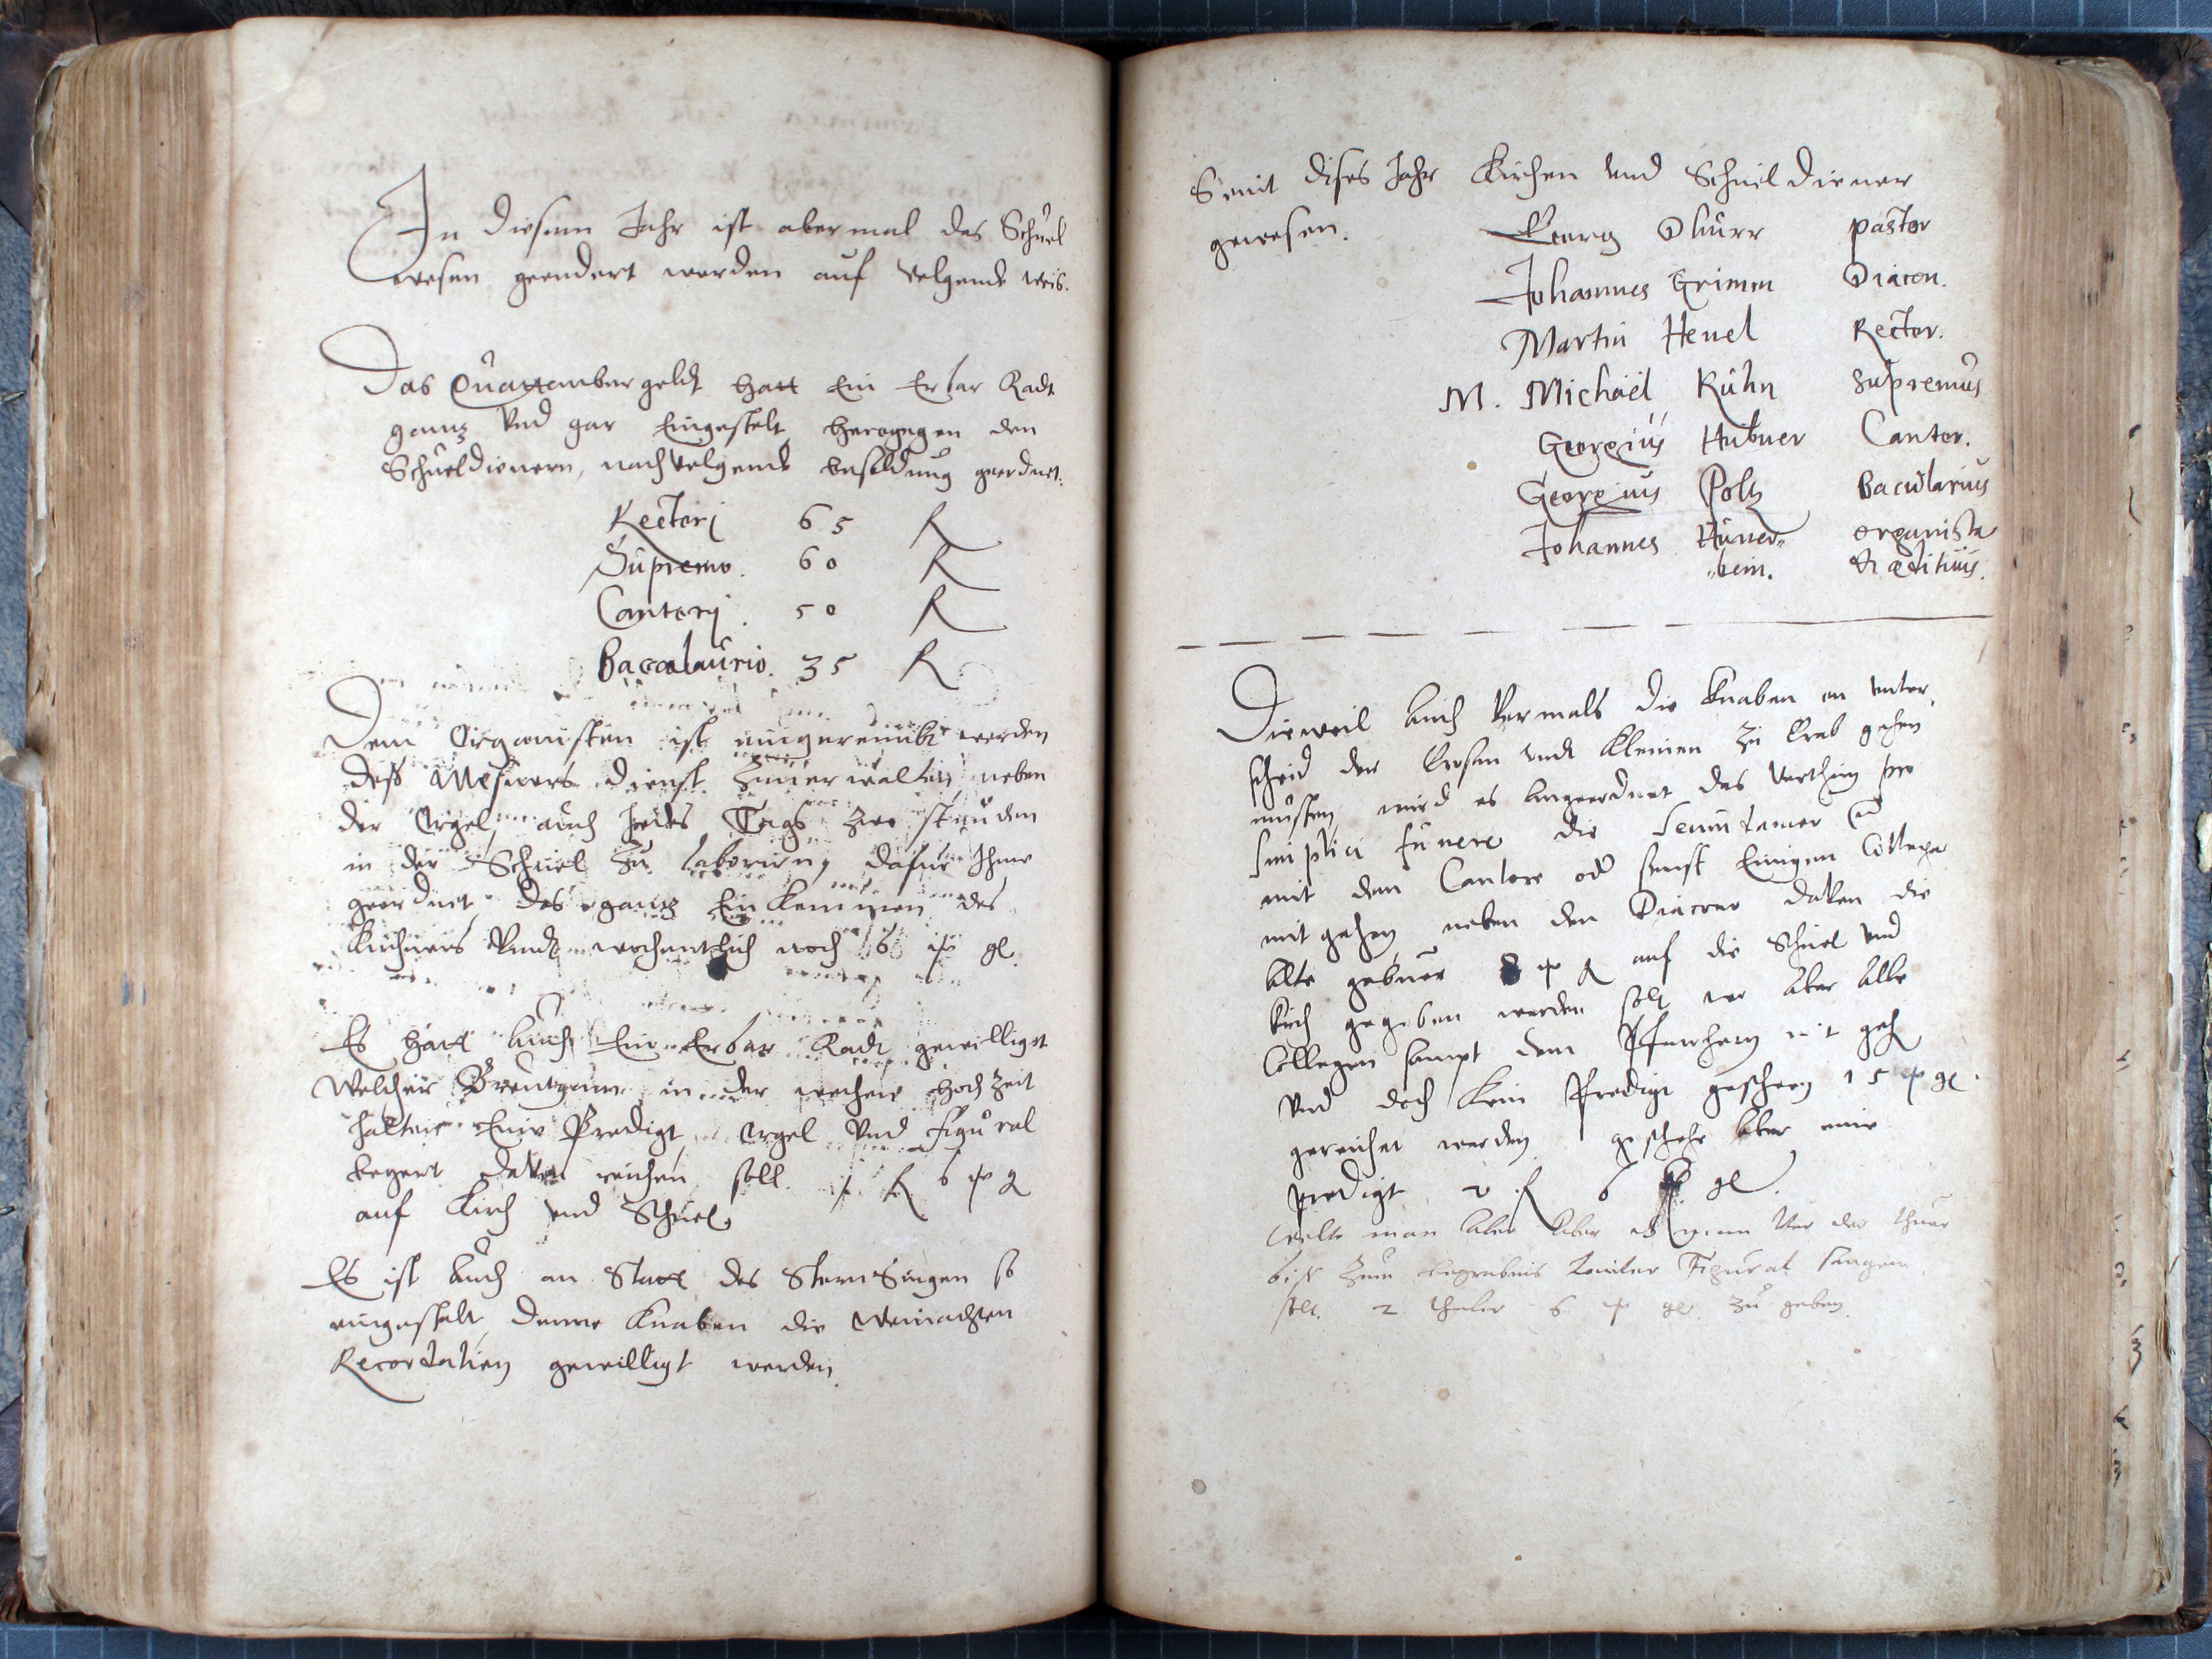 In diesem Jahr ist abermal das Schuel
wesen geendert worden auf volgende weis.
Das Quattember geldt hatt Ein Erbar Radt
gantz vnd gar Eingestelt, herogegen den
Schueldienern, nachvolgende besoldung geordnet.
Rectorj 65 R
Supremo. 60 R
Cantorj. 50 R
Baccalaurio. 35 R
Dem Organisten ist eingereumbt worden
deß Mesners dienst zuuerwalten neben
der Orgel, auch jedes Tags zwo stunden
in der Schuel zu laborirn, dafur Ihme
geordnet das gantz Einkommen des
Kirchners vnndt wochentlich noch 6 gl.
Es hatt auch Ein Erbar Radt gewilligt
Welcher Breutgam in der wochen hochzeit
halten Eine Predigt, orgel vnd figural
begert dauon reichen soll. 1 R 6
auf Kirch vnd Schuel.
Es ist auch an Statt des SternSingen so
eingestelt, denen Knaben die Weinachten
Recordation gewilligt worden.
Seint dises Jahr Kirchen vnd Schueldiener
gewesen.
Georg Thürr pastor
Johannes Grimm Diacon.
Martin Heuel Rector.
M. Michaël Kuhn Supremus
Georgius Hubner Cantor.
Georgius Poltz Baculariuus
Johannes Hüner= organista
=bein. & ædituus.
Dieweil auch vormals die knaben on vnter
scheid der Grosen vndt Kleinen zu Grab gehen
musten, wird es angeordnet das vorthin pro
simplici funere die
mit dem Cantore od sonst Einigem Collega
mit gehen neben den Diacono dauon die
alte gebuer 8 auf die Schuel vnd
Kirch gegeben werden soll wo aber alle
Collegen sampt dem Pfarhern mit gehn
vnd doch kein Predigt geschehen 15 gl.
gereichet werden geschehe aber eine
predigt 2 R 6 gl.
wolte man aber das man vor der thuer
biß zum begrebnis Figural sungen
solt. 2 thaler 6 gl. zu geben.